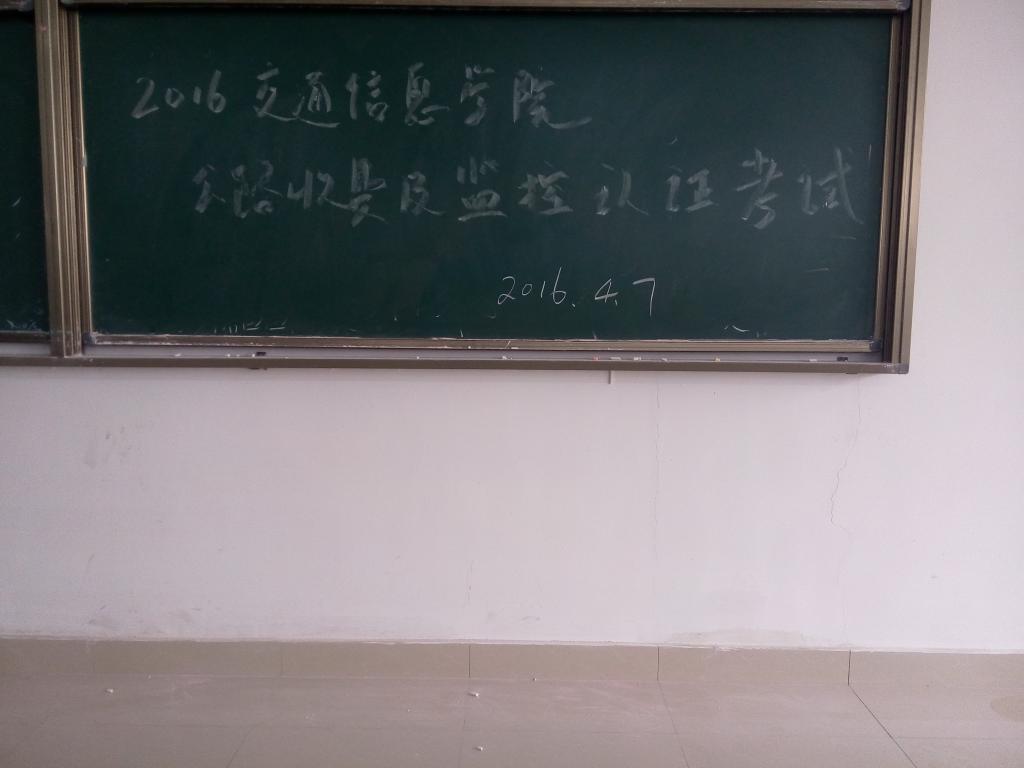 2016交通信息学院
公路收费及监控认证考试
2016.4.7